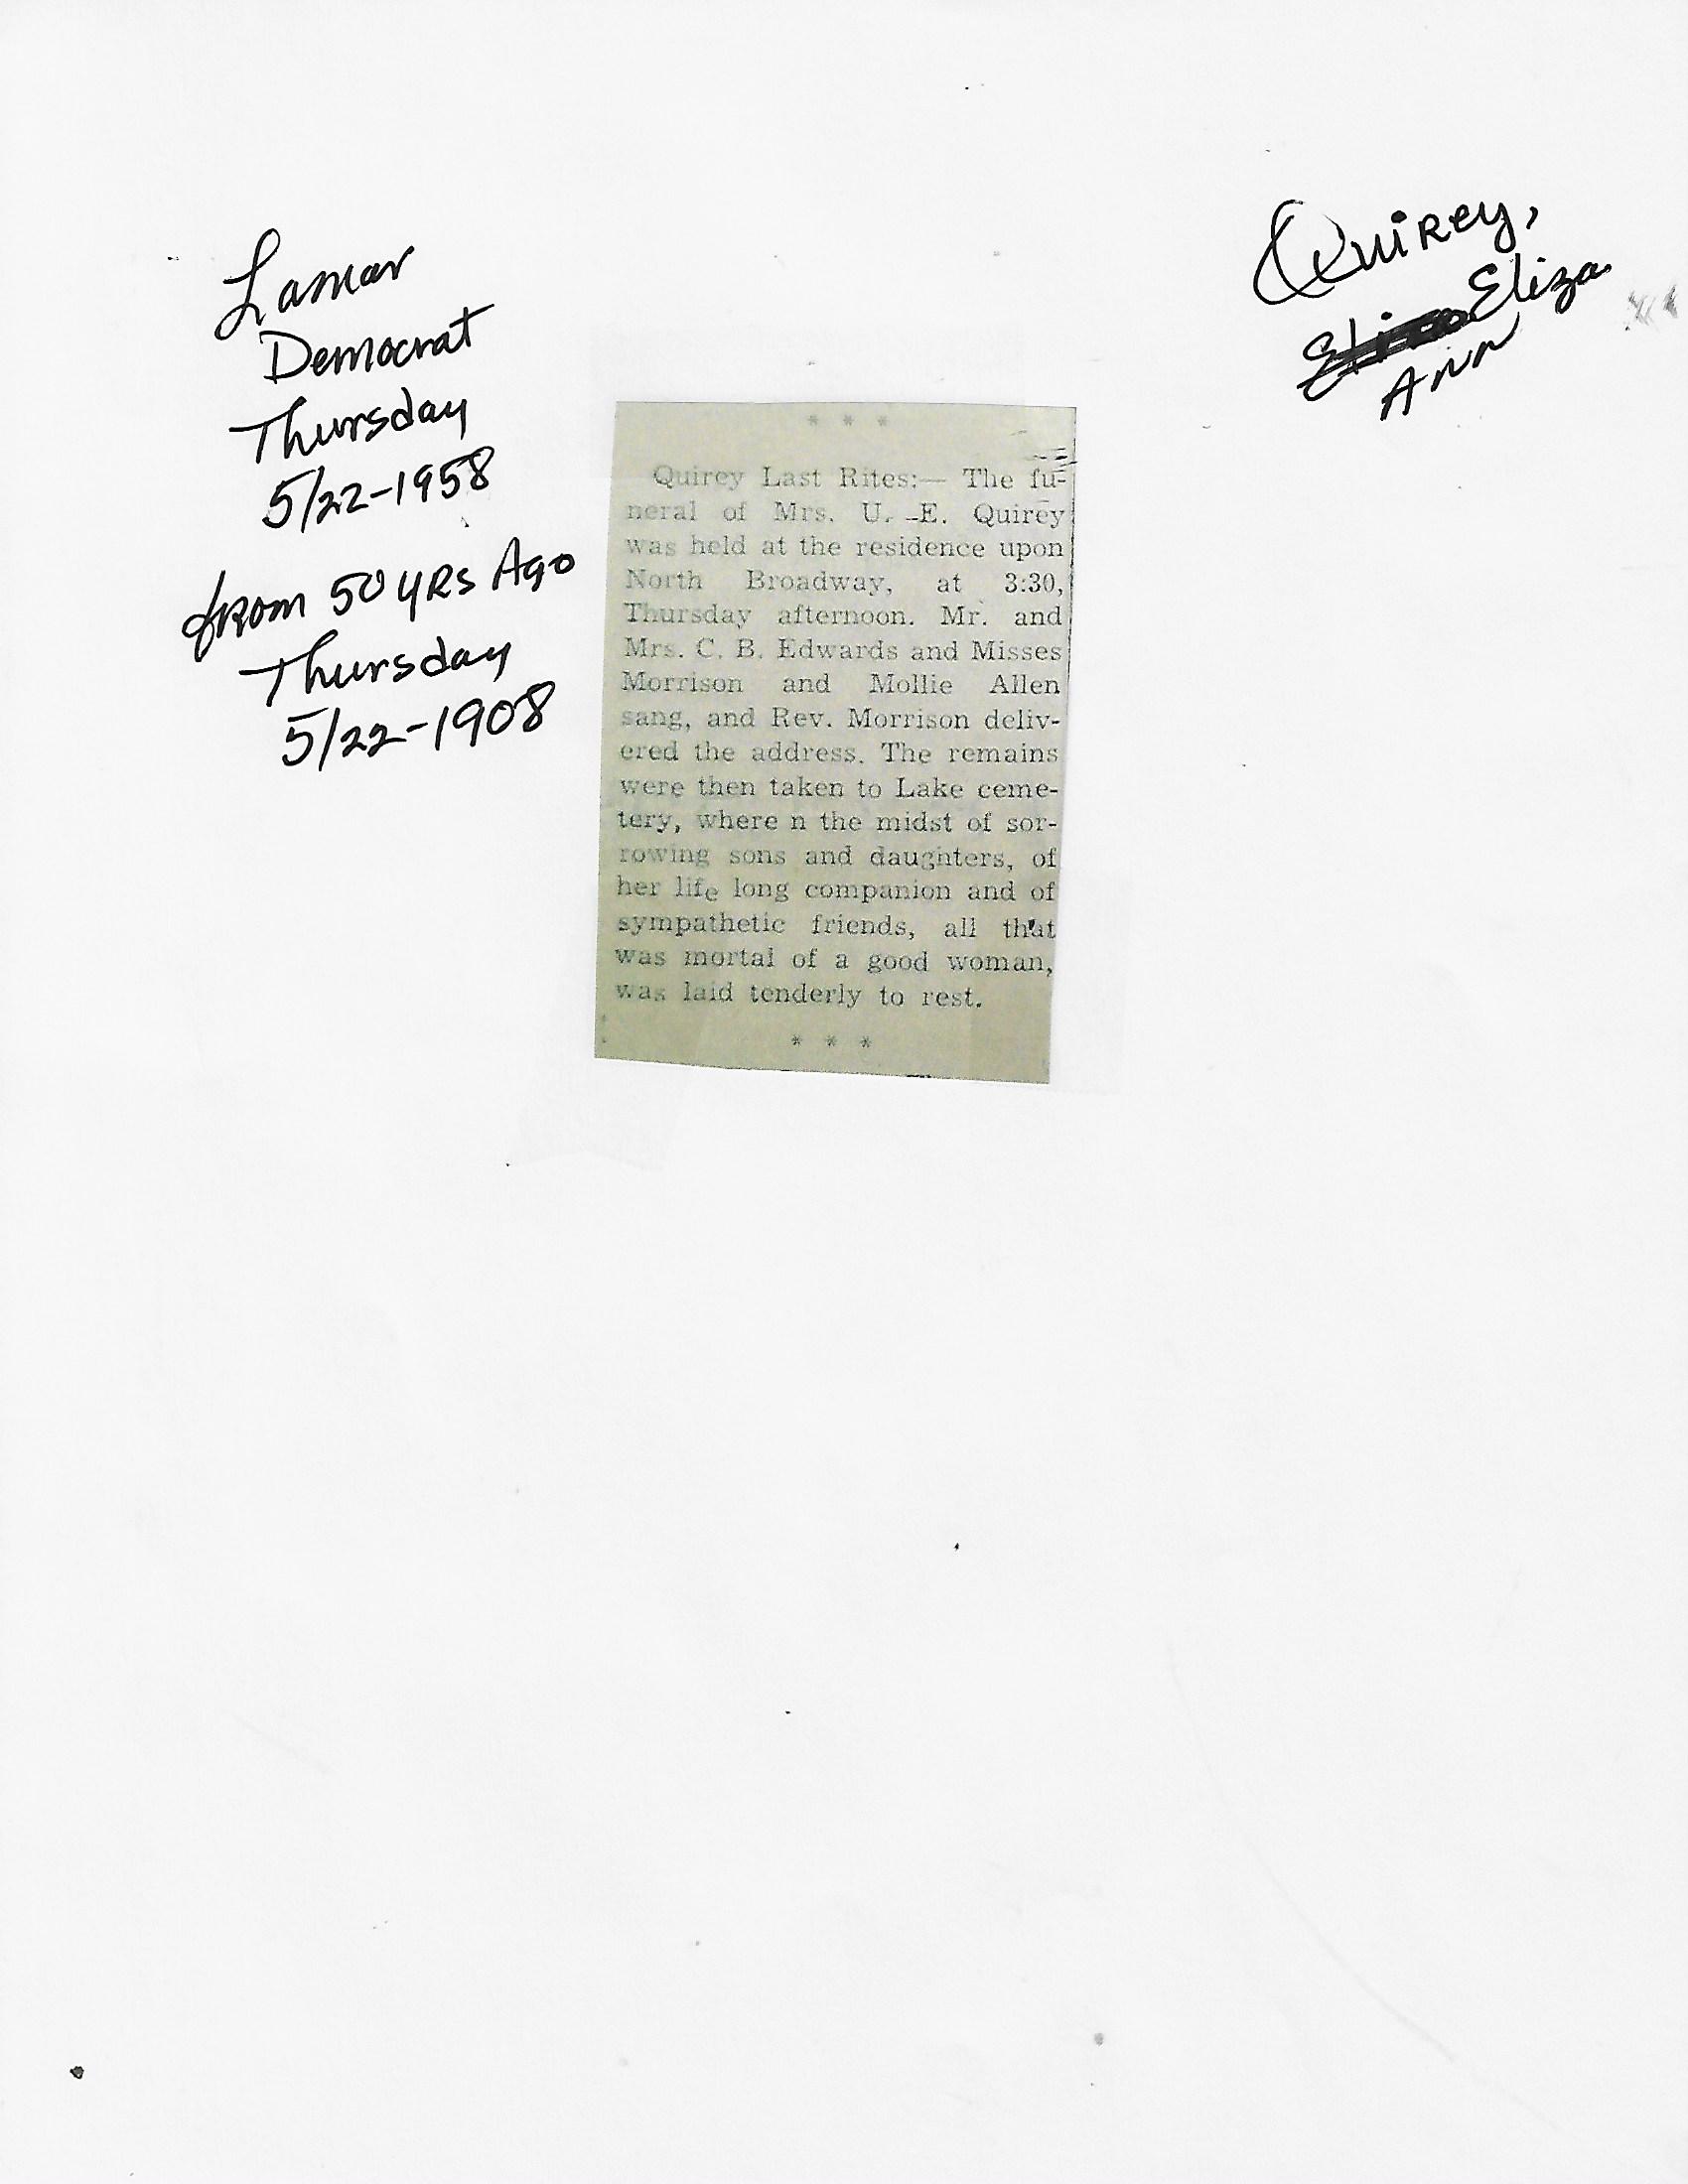 Lamar
Democrat
Thursday
5/22-1958
from 50 YRS Ago
Thursday
5/22-1908
Quirey,
Eliza
Ann
* * *
Quirey Last Rites:— The fu-
neral of Mrs. U. E. Quirey
was held at the residence upon
North Broadway, at 3:30,
Thursday afternoon. Mr. and
Mrs. C. B. Edwards and Misses
Morrison and Mollie Allen
sang, and Rev. Morrison deliv-
ered the address. The remains
were then taken to Lake ceme-
tery, where n the midst of sor-
rowing sons and daughters, of
her life long companion and of
sympathetic friends, all that
was mortal of a good woman,
was laid tenderly to rest.
* * *